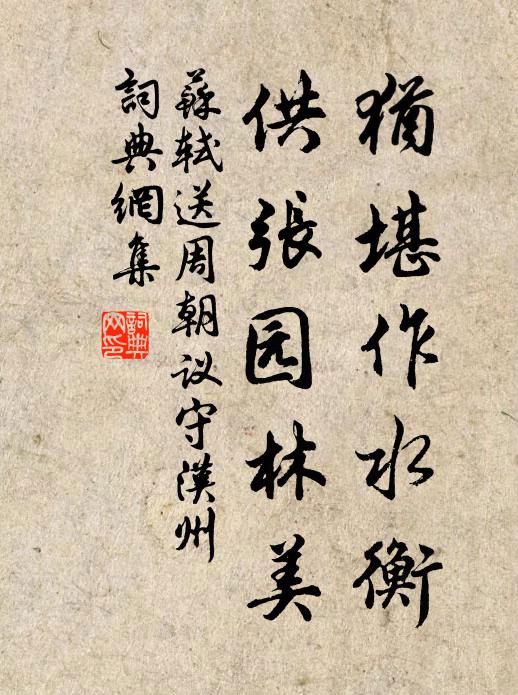 猶堪作水衡
供張园林美
蘇軾送周朝议守漢州
詞典網集
詞典网印